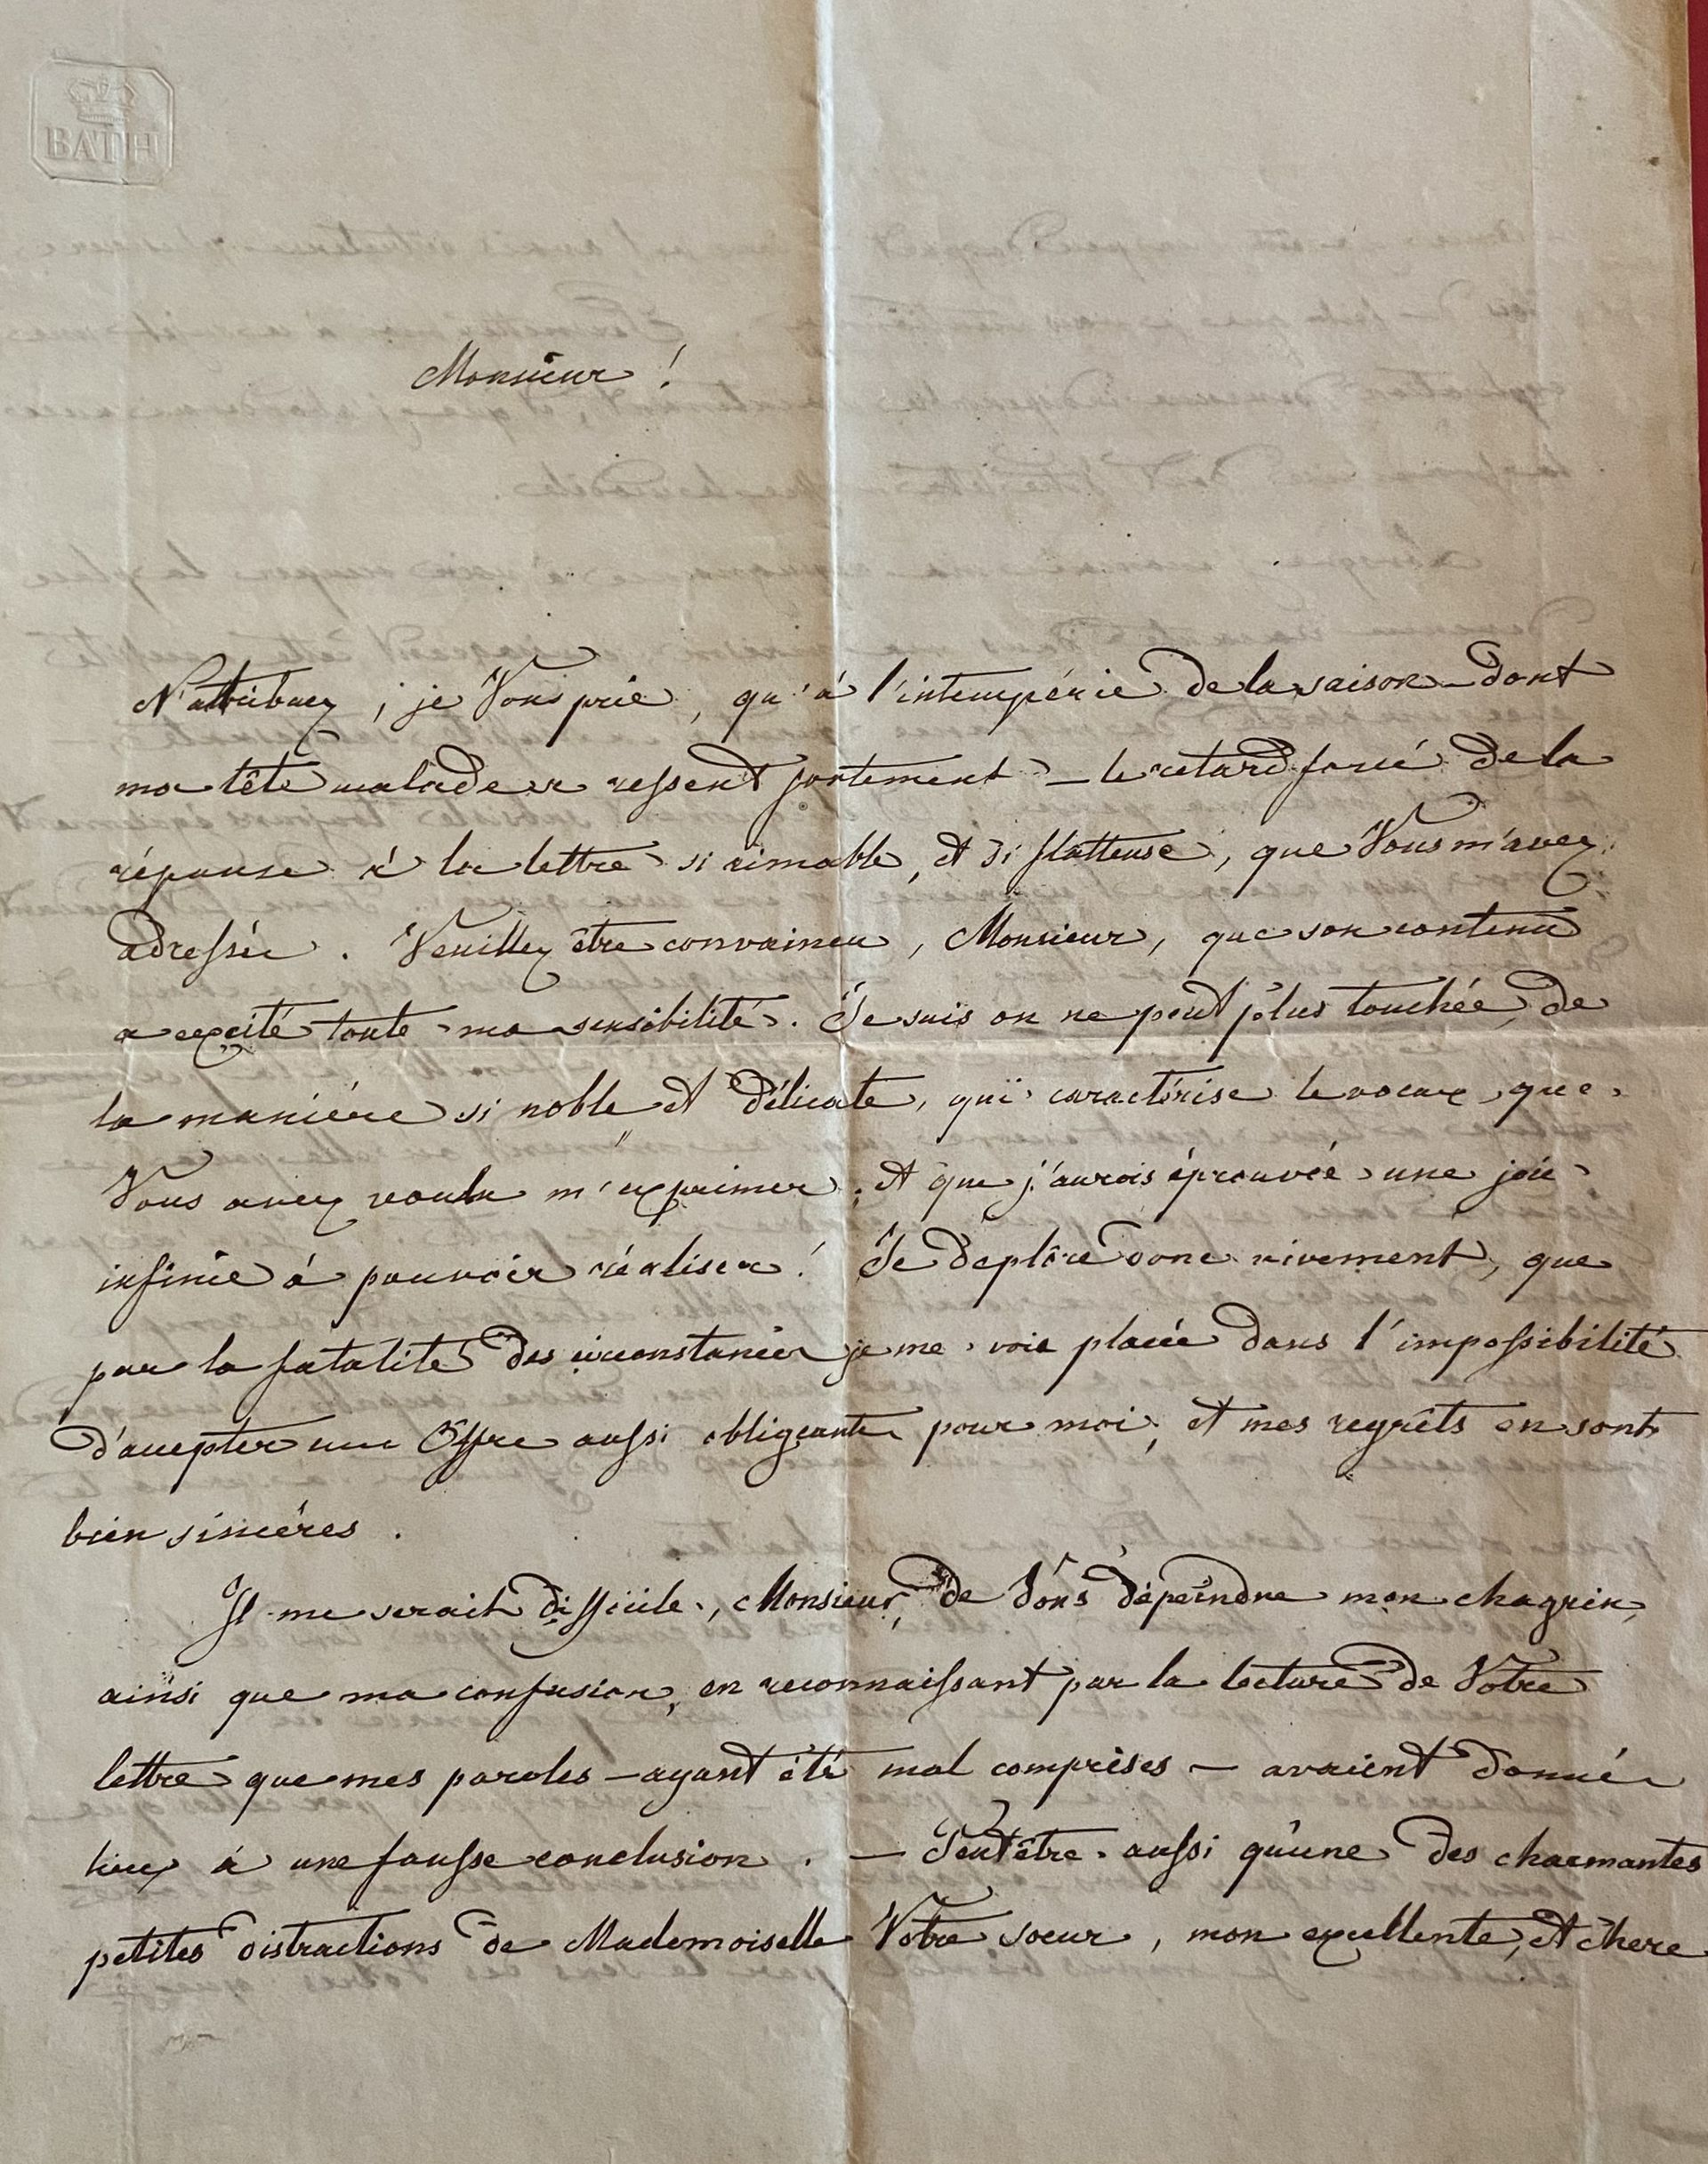 BATH
Monsieur !
N'attribuez, je Vous prie, qu'à l'intempérie de la saison – dont
ma tête malade se ressent fortement – le retard forcé de la
réponse à la lettre si aimable, et si flatteuse, que Vous m'avez
adressée. Veuillez être convaincu, Monsieur, que son contenu
a excité toute ma sensibilité. Je suis on ne peut plus touchée, de
la manière si noble et délicate, qui caractérise le voeux, que
Vous avez voulu m'exprimer, et que j'aurois éprouvée une joie
infinie à pouvoir réaliser ! Je déplore donc vivement, que
par la fatalité des circonstances je me vois placée dans l'impossibilité
d'accepter une Offre aussi obligeante pour moi, et mes regrèts en sont
bien sincéres.
Il me serait difficile, Monsieur, de Vous dépeindre mon chagrin,
ainsi que ma confusion, en reconnaissant par la lecture de Votre
lettre que mes paroles – ayant été mal comprises – avaient donné
lieu à une fausse conclusion. – Peutêtre aussi qu'une des charmantes
petites distractions de Mademoiselle Votre soeur, mon excellente, et chere